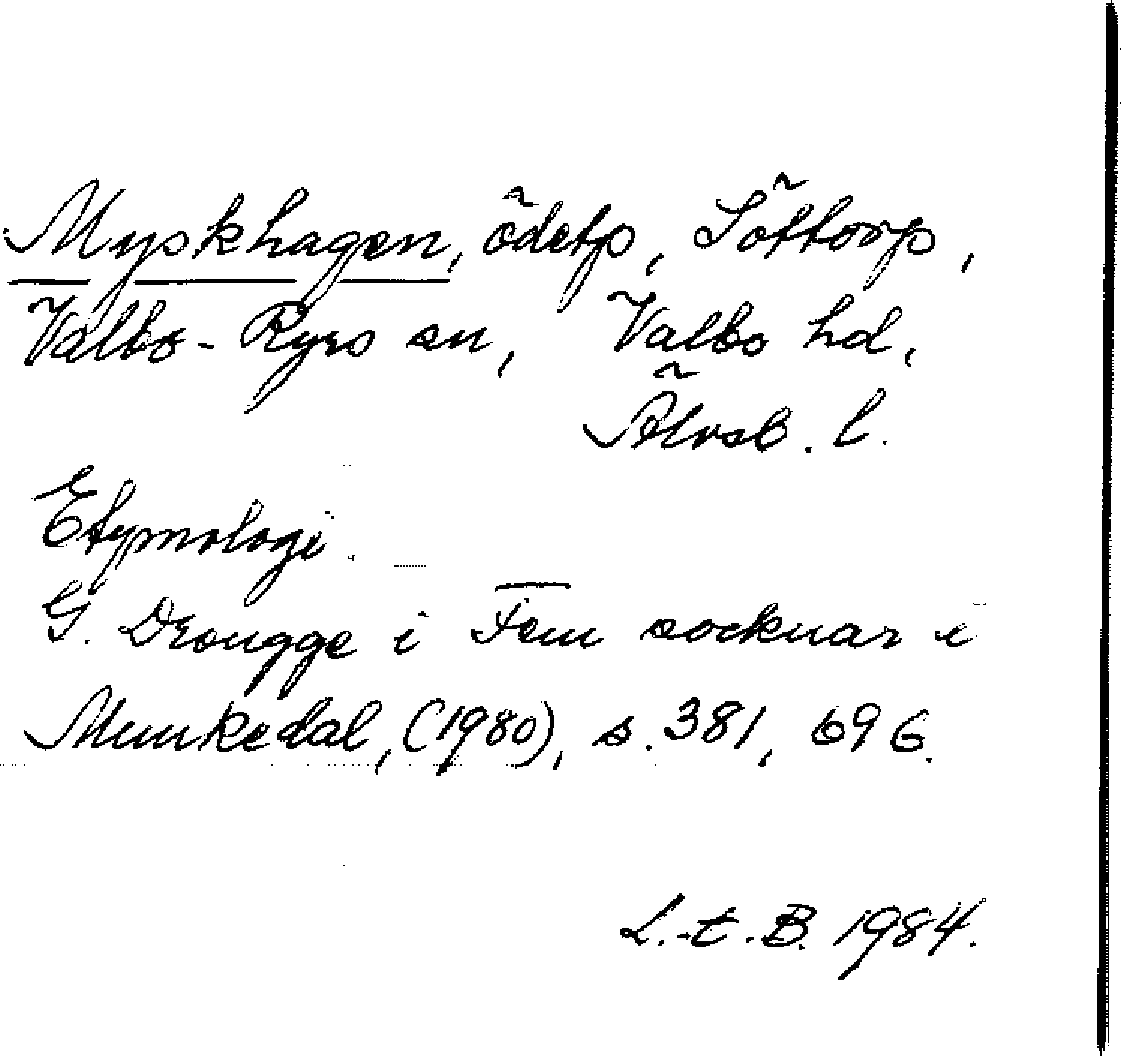 Myskhagen, ödetp, Töftorp,
Valbo-Ryrs sn, Valbo hd,
Älvsb. l.
Etymologi.
G. Drougge i Fem socknar i
Munkedal, (1980), s. 381, 696.
L.-t.B. 1984.